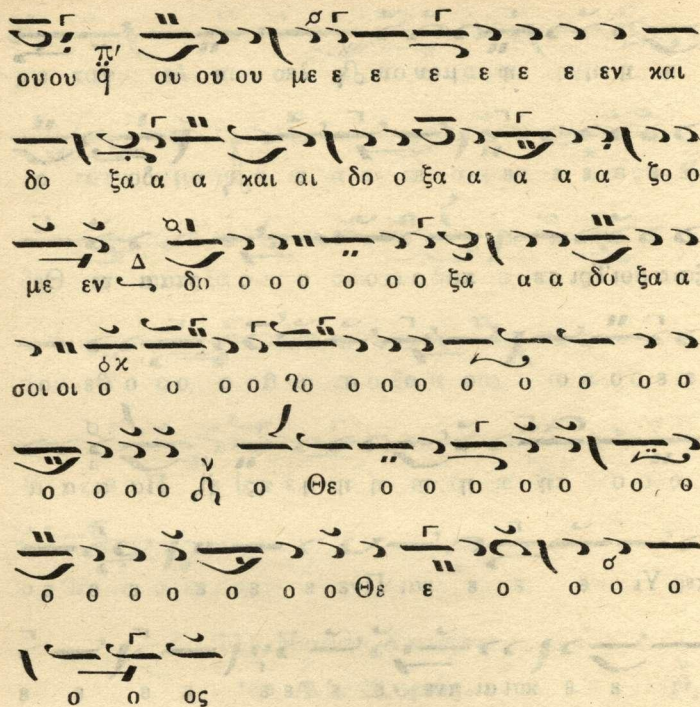 ου ου π' q̈ ου ου ου με ε ε ε ε ε ε εν και
δο ξα α α και αι δο ο ξα α α α α ζο ο
με εν Δ δο ο ο ο ο ο ο ξα α α δο ξα α
σοι οι ο ο ο λο ο ο ο ο ο ο ο ο ο
ο ο ο ο ν ο Θε ο ο ο ο ο ο ο
ο ο ο ο ο ο ο ο Θε ε ο ο ο ο
ο ο ος